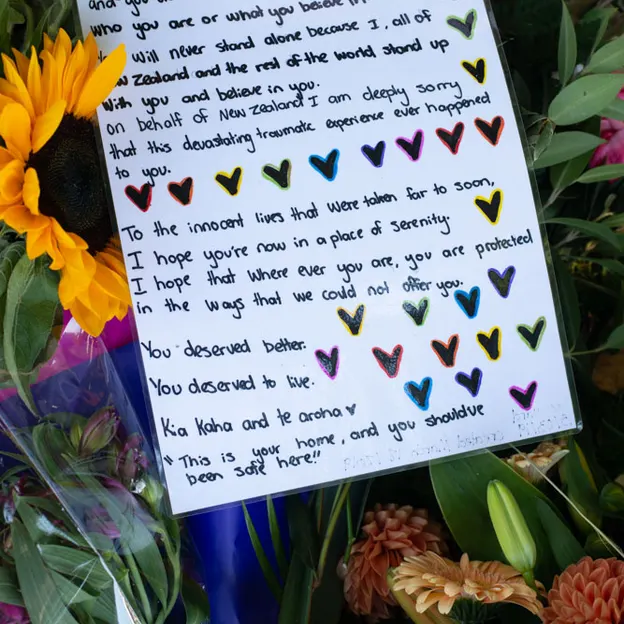 who you are or what you believe in
will never stand alone because I, all of
Zealand and the rest of the world stand up
with you and believe in you.
on behalf of New Zealand I am deeply sorry
that this devastating traumatic experience ever happened
to you.
To the innocent lives that were taken far to soon,
I hope you're now in a place of serenity.
I hope that where ever you are, you are protected
in the ways that we could not offer you.
You deserved better.
You deserved to live.
Kia Kaha and te aroha
"This is your home, and you shouldve
been safe here!"